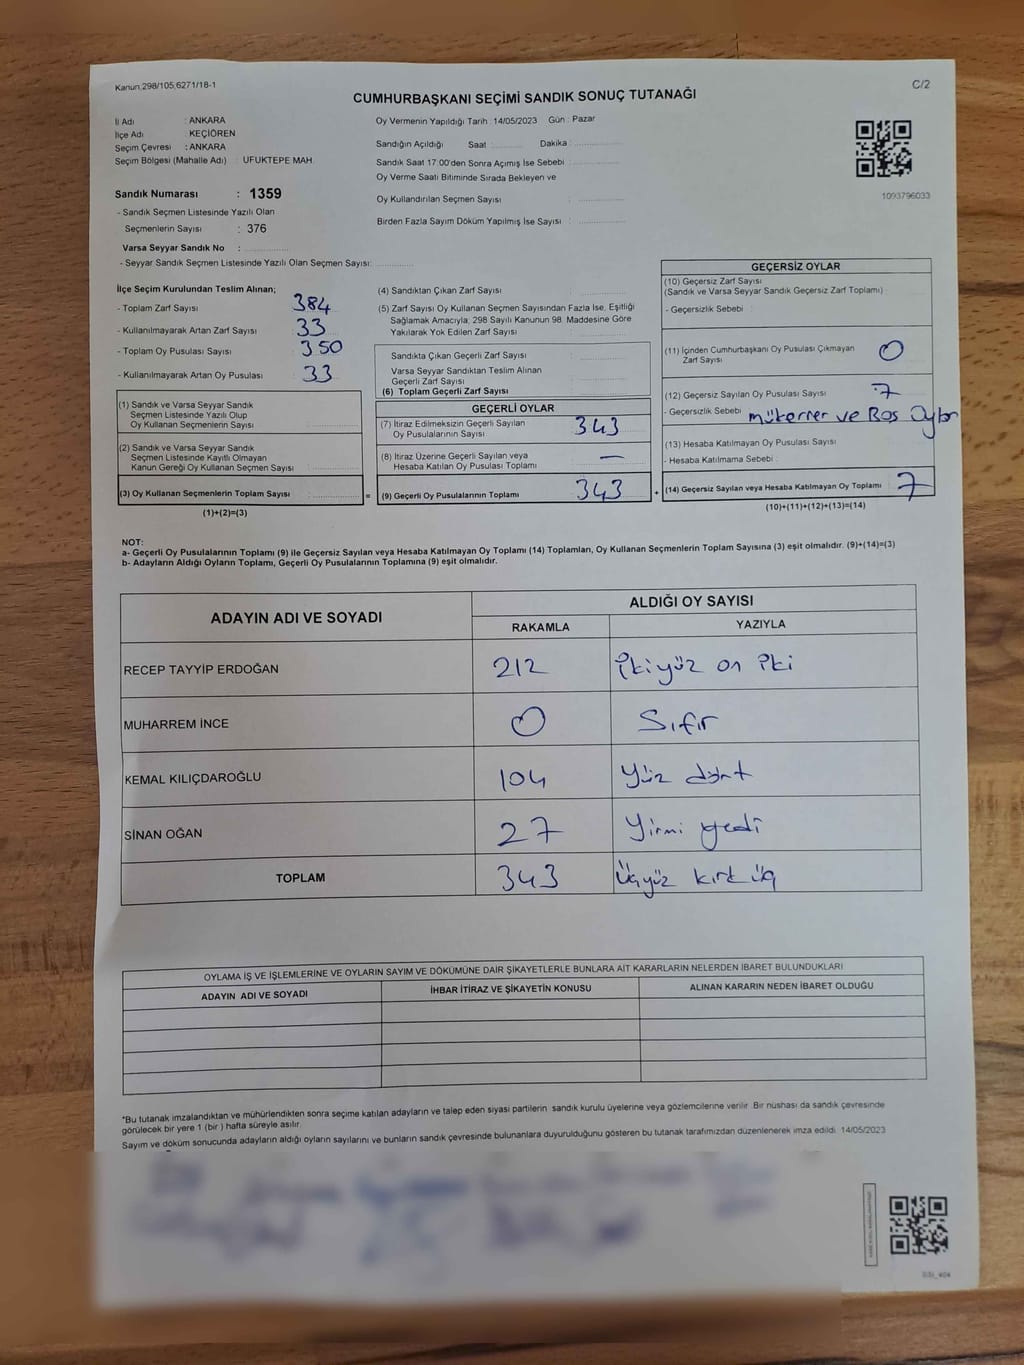 Kanun;298/105,6271/18-1
C/2
CUMHURBAŞKANI SEÇİMİ SANDIK SONUÇ TUTANAĞI
İl Adı : ANKARA
İlçe Adı : KEÇİÖREN
Seçim Çevresi : ANKARA
Seçim Bölgesi (Mahalle Adı) : UFUKTEPE MAH.
Sandık Numarası : 1359
- Sandık Seçmen Listesinde Yazılı Olan
Seçmenlerin Sayısı : 376
Varsa Seyyar Sandık No :
- Seyyar Sandık Seçmen Listesinde Yazılı Olan Seçmen Sayısı:
Oy Vermenin Yapıldığı Tarih : 14/05/2023 Gün : Pazar
Sandığın Açıldığı Saat : Dakika :
Sandık Saat 17:00'den Sonra Açımış İse Sebebi :
Oy Verme Saati Bitiminde Sırada Bekleyen ve
Oy Kullandırılan Seçmen Sayısı :
Birden Fazla Sayım Döküm Yapılmış İse Sayısı :
1093796033
İlçe Seçim Kurulundan Teslim Alınan;
- Toplam Zarf Sayısı : 384
- Kullanılmayarak Artan Zarf Sayısı : 33
- Toplam Oy Pusulası Sayısı : 350
- Kullanılmayarak Artan Oy Pusulası : 33
(1) Sandık ve Varsa Seyyar Sandık
Seçmen Listesinde Yazılı Olup
Oy Kullanan Seçmenlerin Sayısı :
(2) Sandık ve Varsa Seyyar Sandık
Seçmen Listesinde Kayıtlı Olmayan
Kanun Gereği Oy Kullanan Seçmen Sayısı :
(3) Oy Kullanan Seçmenlerin Toplam Sayısı :
(1)+(2)=(3)
(4) Sandıktan Çıkan Zarf Sayısı :
(5) Zarf Sayısı Oy Kullanan Seçmen Sayısından Fazla İse, Eşitliği
Sağlamak Amacıyla, 298 Sayılı Kanunun 98. Maddesine Göre
Yakılarak Yok Edilen Zarf Sayısı :
Sandıkta Çıkan Geçerli Zarf Sayısı :
Varsa Seyyar Sandıktan Teslim Alınan
Geçerli Zarf Sayısı :
(6) Toplam Geçerli Zarf Sayısı :
GEÇERLİ OYLAR
(7) İtiraz Edilmeksizin Geçerli Sayılan
Oy Pusulalarının Sayısı : 343
(8) İtiraz Üzerine Geçerli Sayılan veya
Hesaba Katılan Oy Pusulası Toplamı : —
= (9) Geçerli Oy Pusulalarının Toplamı : 343
GEÇERSİZ OYLAR
(10) Geçersiz Zarf Sayısı
(Sandık ve Varsa Seyyar Sandık Geçersiz Zarf Toplamı) :
- Geçersizlik Sebebi :
(11) İçinden Cumhurbaşkanı Oy Pusulası Çıkmayan
Zarf Sayısı : 0
(12) Geçersiz Sayılan Oy Pusulası Sayısı : 7
- Geçersizlik Sebebi : mükerrer ve Boş Oylar
(13) Hesaba Katılmayan Oy Pusulası Sayısı :
- Hesaba Katılmama Sebebi :
+ (14) Geçersiz Sayılan veya Hesaba Katılmayan Oy Toplamı : 7
(10)+(11)+(12)+(13)=(14)
NOT:
a- Geçerli Oy Pusulalarının Toplamı (9) ile Geçersiz Sayılan veya Hesaba Katılmayan Oy Toplamı (14) Toplamları, Oy Kullanan Seçmenlerin Toplam Sayısına (3) eşit olmalıdır. (9)+(14)=(3)
b- Adayların Aldığı Oyların Toplamı, Geçerli Oy Pusulalarının Toplamına (9) eşit olmalıdır.
ADAYIN ADI VE SOYADI ALDIĞI OY SAYISI
RAKAMLA YAZIYLA
RECEP TAYYİP ERDOĞAN 212 İkiyüz on iki
MUHARREM İNCE 0 Sıfır
KEMAL KILIÇDAROĞLU 104 Yüz dört
SİNAN OĞAN 27 Yirmi yedi
TOPLAM 343 Üçyüz kırk üç
OYLAMA İŞ VE İŞLEMLERİNE VE OYLARIN SAYIM VE DÖKÜMÜNE DAİR ŞİKAYETLERLE BUNLARA AİT KARARLARIN NELERDEN İBARET BULUNDUKLARI
ADAYIN ADI VE SOYADI İHBAR İTİRAZ VE ŞİKAYETİN KONUSU ALINAN KARARIN NEDEN İBARET OLDUĞU
*Bu tutanak imzalandıktan ve mühürlendikten sonra seçime katılan adayların ve talep eden siyasi partilerin sandık kurulu üyelerine veya gözlemcilerine verilir. Bir nüshası da sandık çevresinde
görülecek bir yere 1 (bir ) hafta süreyle asılır.
Sayım ve döküm sonucunda adayların aldığı oyların sayılarını ve bunların sandık çevresinde bulunanlara duyurulduğunu gösteren bu tutanak tarafımızdan düzenlenerek imza edildi. 14/05/2023